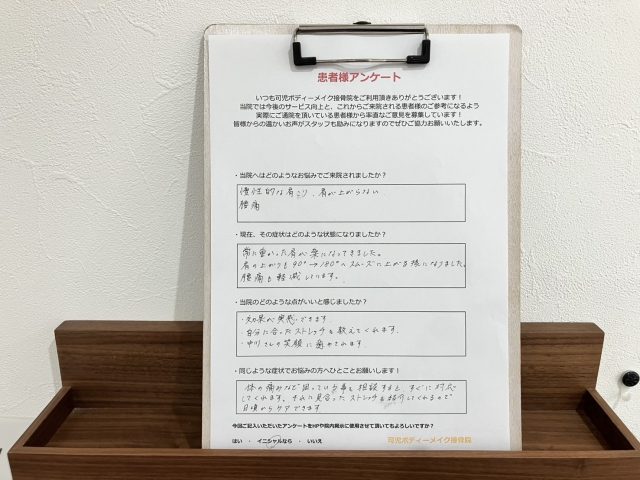 患者様アンケート
いつも可児ボディーメイク接骨院をご利用頂きありがとうございます！
当院では今後のサービス向上と、これからご来院される患者様のご参考になるよう
実際にご通院を頂いている患者様から率直なご意見を募集しています！
皆様からの温かいお声がスタッフも励みになりますのでぜひご協力お願いいたします。
・当院へはどのようなお悩みでご来院されましたか？
慢性的な肩こり、肩が上がらない
腰痛
・現在、その症状はどのような状態になりましたか？
常に重かった肩が楽になってきました。
肩の上がりも90°→180°へスムーズに上がる様になりました。
腰痛も軽減しています。
・当院のどのような点がいいと感じましたか？
・効果が実感できます。
・自分に合ったストレッチを教えてくれます。
・中川さんの笑顔に癒やされます。
・同じような症状でお悩みの方へひとことお願いします！
体の痛みなど困っている事を相談すると、すぐに対応
してくれます。それに見合ったストレッチも紹介してくれるので
日頃からケアできます
今回ご記入いただいたアンケートをHPや院内掲示に使用させて頂いてもよろしいですか？
はい ・ イニシャルなら ・ いいえ
可児ボディーメイク接骨院